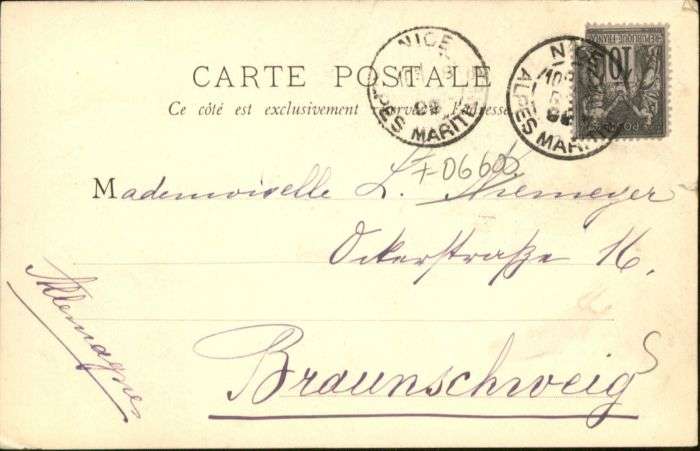 CARTE POSTALE
Ce côté est exclusivement réservé à l'adresse
NICE
ALPES MARITIMES
NICE
ALPES MARIT
REPUBLIQUE FRANC
10
POSTES
F06600
Mademoiselle L. Niemeyer
Ockerstraße 16.
Braunschweig
Allemagne